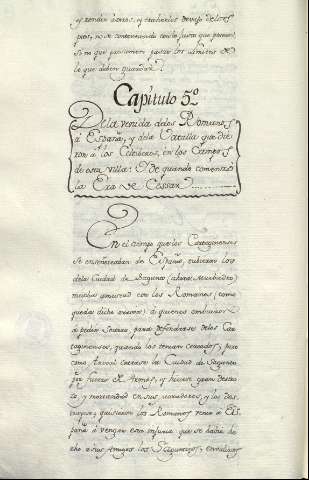 y rendir
pies, no se contentando con lo justo que parece;
sino que quisieron pasar los limites de
lo que deben guardar.
Capítulo 5º
De la venida de los Romanos
á España, y de la Batalla que die
ron á los Celtiberos, en los Campos
de esta villa: Y de quando comenzó
la Era de Cessar
En el tiempo que los Cartagineses
se enseñoreaban de España, tubieron los
de la Ciudad de Sagunto (ahora Murbiedro)
mucha amistad con los Romanos (como
queda dicho ) á quienes embiaron
á pedir Socorro para defenderse de los Car
tagineses, quando los tenian cercados; pero
como Anival entrase la Ciudad de Sagunto
por fuerza de Armas, y hiciese gran destro
zo, y mortandad en sus moradores, y los des
truyese; quisieron los Romanos venir á Es
paña á vengar esta injuria que se habia he
cho á sus Amigos los Saguntinos, embiaron